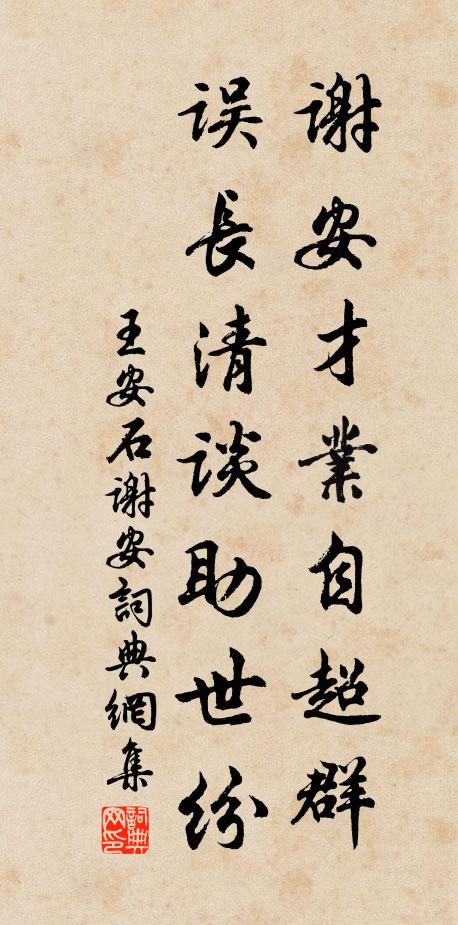 谢安才業自超群
误長清谈助世纷
王安石谢安詞典網集
詞典网印